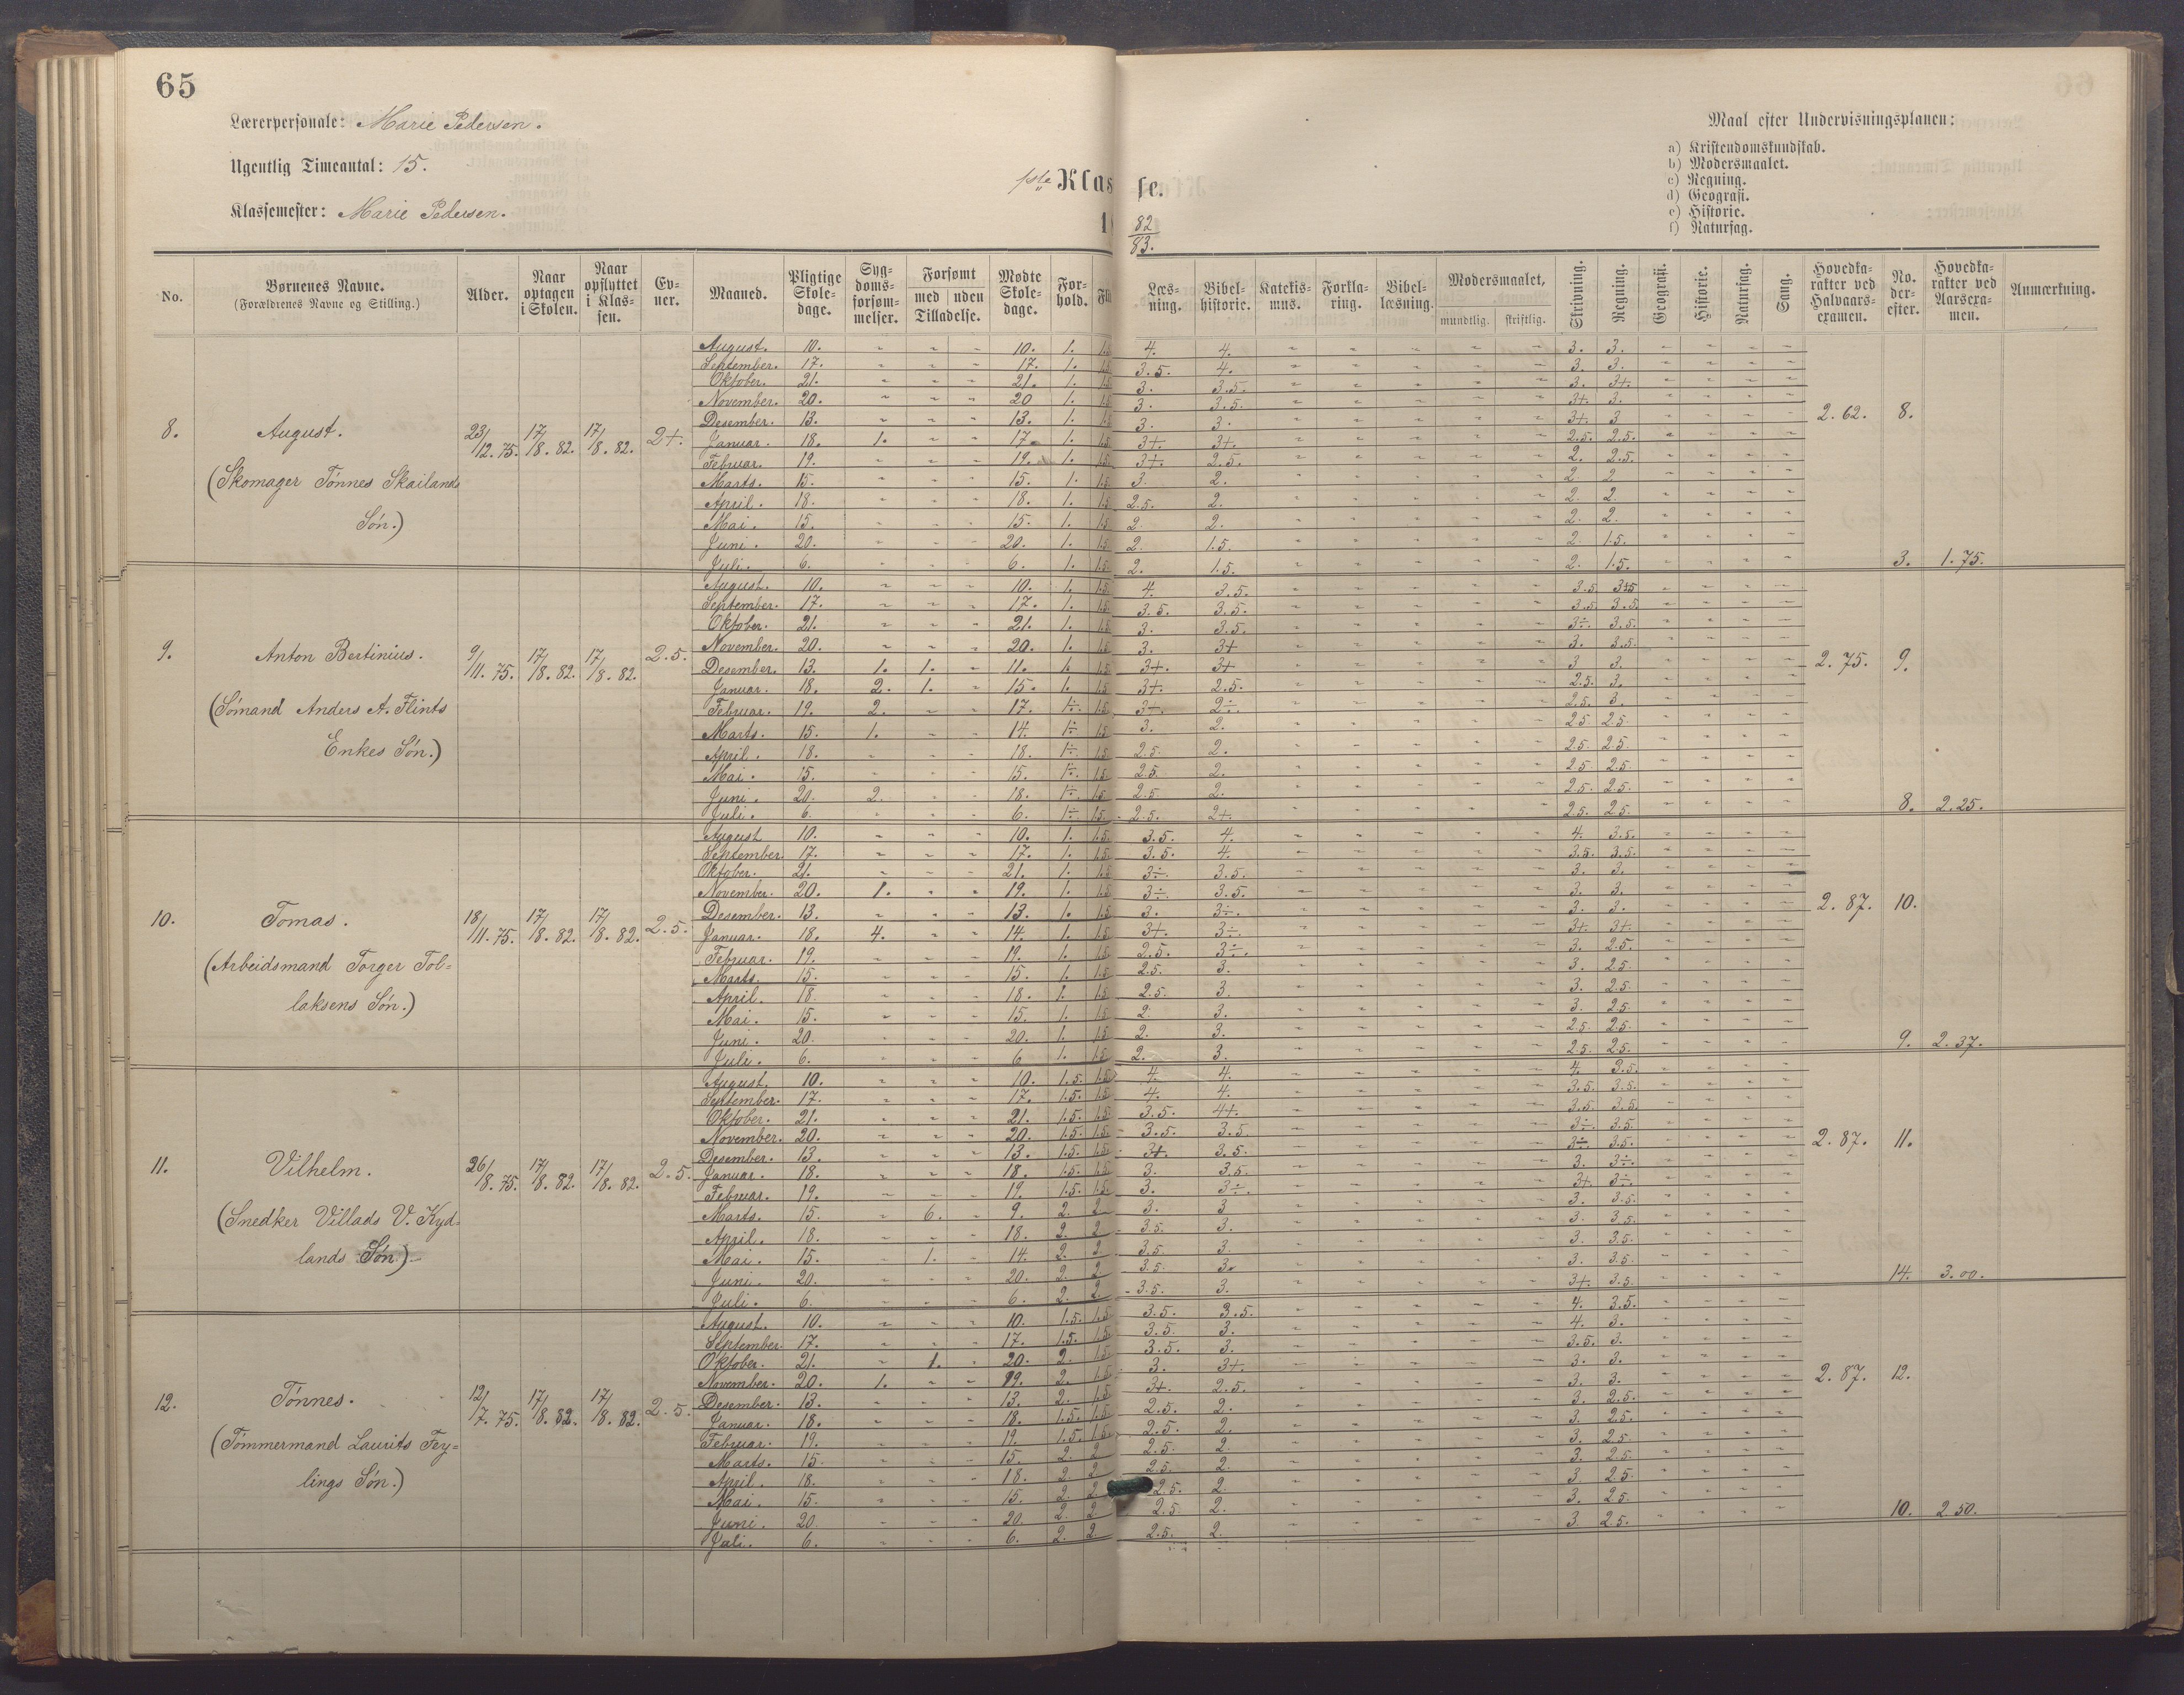 65
Lærerpersonale: Marie Pedersen.
Ugentlig Timeantal: 15.
Klassemester: Marie Pedersen.
1ste Klas se.
18 82/83.
Maal efter Undervisningsplanen:
a) Kristendomskundskab.
b) Modersmaalet.
c) Regning.
d) Geografi.
e) Historie.
f) Naturfag.
No. Børnenes Navne. (Forældrenes Navne og Stilling.) Alder. Naar optagen i Skolen. Naar opflyttet i Klassen. Evner. Maaned. Pligtige Skoledage. Sygdomsforsømmelser. Forsømt med uden Tilladelse. Mødte Skoledage. Forhold. Læsning. Bibelhistorie. Katekismus. Forklaring. Bibellæsning. Modersmaalet, mundtlig. skriftlig. Skrivning. Regning. Geografi. Historie. Naturfag. Sang. Hovedkarakter ved Halvaarsexamen. No. derefter. Hovedkarakter ved Aarsexamen. Anmærkning.
8. August. (Skomager Tönnes Skailands Sön.) 23/12. 75. 17/8. 82. 17/8. 82. 2+. 2.62. 8.
August. 10. " " " 10. 1. 1.5 4. 4. 3. 3.
September. 17. " " " 17. 1. 1.5 3.5. 4. 3. 3.
Oktober. 21. " " " 21. 1. 1.5 3. 3.5. 3. 3+.
November. 20. " " " 20 1. 1.5 3. 3.5. 3+. 3.
Desember. 13. " " " 13. 1. 1.5 3. 3. 3+. 3
Januar. 18. 1. " " 17. 1. 1.5 3+. 3+. 2.5. 2.5.
Februar. 19. " " " 19. 1. 1.5 3+. 2.5. 2. 2.5.
Marts. 15. " " " 15. 1. 1.5 3. 2. 2 2
April. 18. " " " 18. 1. 1.5 2.5. 2. 2. 2.
Mai. 15. " " " 15. 1. 1.5 2. 2. 2. 2.
Juni. 20. " " " 20. 1. 1.5 2. 1.5. 2. 1.5.
Juli. 6. " " " 6. 1. 1.5 2. 1.5. 2. 1.5. 3. 1.75.
9. Anton Bertinius. (Sömand Anders A. Flints Enkes Sön.) 9/11. 75. 17/8. 82. 17/8. 82. 2.5. 2.75. 9.
August. 10. " " " 10. 1. 1.5 4. 3.5. 3.5
September. 17. " " " 17. 1. 1.5 3.5. 3.5. 3.5. 3.5.
Oktober. 21. " " " 21. 1. 1.5 3. 3.5. 3÷. 3.5.
November. 20. " " " 20. 1. 1.5 3. 3+ 3. 3.5.
Desember. 13. 1. 1. " 11. 1. 1.5 3+. 3+ 3 3.
Januar. 18. 2. 1. " 15. 1. 1.5 3+. 2.5. 2.5. 3.
Februar. 19. 2. " " 17. 1÷. 1.5 2÷. 2.5. 3.
Marts. 15. 1. " " 14. 1÷. 1.5 3. 2. 2.5 2.5.
April. 18. " " " 18. 1÷. 1.5 2.5. 2. 2.5. 2.5.
Mai. 15. " " " 15. 1÷. 1.5 2.5. 2. 2.5 2.5.
Juni. 20. 2. " " 18. 1÷. 1.5 2.5. 2. 2.5. 2.5.
Juli. 6. " " " 6. 1÷. 1.5 2.5. 2+. 2.5. 2.5. 8. 2.25.
10. Tomas. (Arbeidsmand Torger Tollaksens Sön.) 18/11. 75. 17/8. 82. 17/8. 82. 2.5. 2.87. 10.
August 10. " " " 10. 1. 1.5 3.5. 4. 4. 3.5.
September 17. " " " 17. 1. 1.5 3.5. 4. 3.5. 3.5.
Oktober. 21. " " " 21. 1. 1.5 3÷. 3.5. 3. 3.
November. 20. 1. " " 19. 1. 1.5 3÷. 3.5. 3. 3.
Desember. 13. " " " 13. 1. 1.5 3. 3÷. 3. 3.
Januar. 18. 4. " " 14. 1. 1.5 3+. 3÷. 3+ 3+.
Februar. 19. " " " 19. 1. 1.5 2.5. 3÷. 3. 2.5.
Marts. 15. " " " 15. 1. 1.5 2.5. 3. 3. 2.5.
April. 18. " " " 18. 1. 1.5 2.5. 3. 3. 2.5.
Mai. 15. " " " 15. 1. 1.5 2. 3. 3. 2.5.
Juni. 20. " " " 20. 1. 1.5 2. 3. 2.5. 2.5.
Juli. 6. " " " 6 1. 1.5 2. 3. 2.5. 2.5. 9. 2.37.
11. Vilhelm. (Snedker Villads V. Kydlands Sön.) 26/8. 75. 17/8. 82. 17/8. 82. 2.5. 2.87. 11.
August. 10. " " " 10. 1.5. 1.5 4. 4. 4. 3.5.
September. 17. " " " 17. 1.5. 1.5 4. 4. 3.5. 3.5.
Oktober. 21. " " " 21. 1.5. 1.5 3.5. 4+. 3.5. 3.5.
November. 20. " " " 20. 1.5. 1.5 3.5. 3.5. 3÷. 3.5.
Desember. 13. " " " 13. 1.5. 1.5 3+. 3.5. 3÷. 3.5.
Januar. 18. " " " 18. 1.5. 1.5 3. 3.5. 3. 3÷.
Februar. 19. " " " 19. 1.5. 1.5. 3. 3÷. 3+ 3÷.
Marts. 15. " 6. " 9. 2. 2 3. 3 3. 3.5.
April. 18. " " " 18. 2. 2 3.5. 3. 3. 3.5.
Mai. 15. " 1. " 14. 2. 2 3.5. 3. 3. 3.5.
Juni. 20. " " " 20. 2. 2 3.5. 3. 3. 3.5.
Juli. 6. " " " 6. 2. 2. 3.5. 3. 3+. 3.5. 14. 3.00.
12. Tönnes. (Tömmermand Laurits Feylings Sön.) 12/7. 75. 17/8. 82. 17/8. 82. 2.5. 2.87. 12.
August. 10. " " " 10. 1.5. 1.5 3.5. 3.5. 4. 3.5.
September. 17. " " " 17. 1.5. 1.5 3.5. 3. 4. 3.
Oktober. 21. " 1. " 20. 2. 1.5 3.5. 3. 3.5. 3.
November. 20. 1. " " 19. 2. 1.5 3. 3+. 3. 3.
Desember. 13. " " " 13. 2. 1.5 3+. 2.5. 3. 3.
Januar. 18. " " " 18. 1.5. 1.5. 2.5. 2. 3. 2.5.
Februar. 19. " " " 19. 1.5. 1.5. 2.5. 2. 3. 2.5.
Marts. 15. " " " 15. 2. 2 2.5. 2. 3. 2.5.
April. 18. " " " 18. 2. 2. 2.5. 2. 3. 2.5.
Mai. 15. " " " 15. 2. 2. 2.5. 2. 3 2.5.
Juni. 20. " " " 20. 2. 2 2.5. 2. 3. 2.5.
Juli. 6. " " " 6. 2. 2. 2.5. 2. 3 2.5. 10. 2.50.